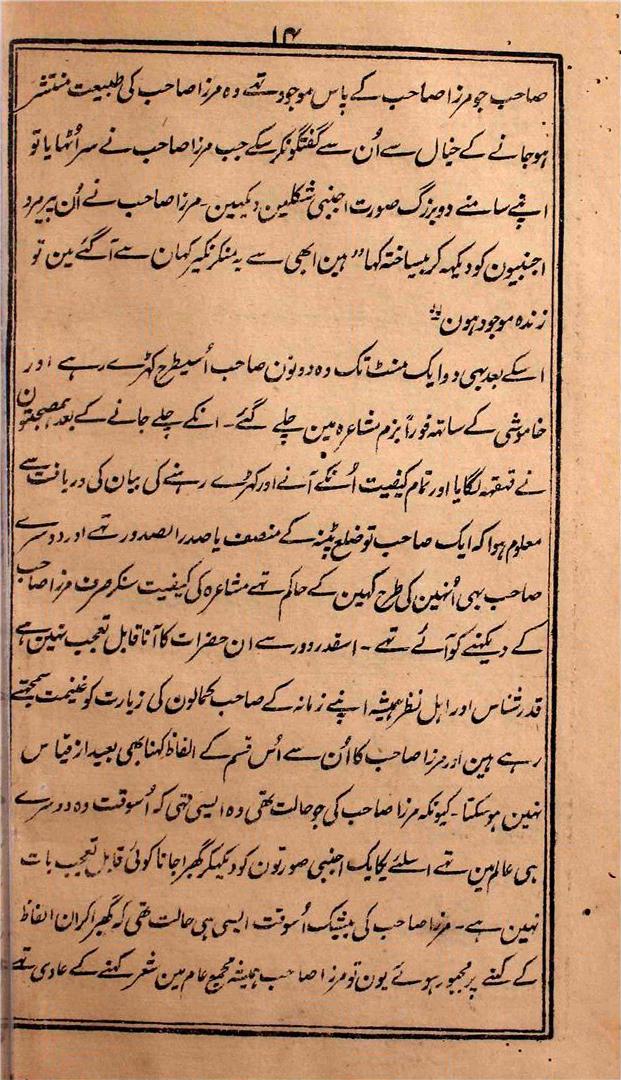 ۱۴
صاحب جو مرزا صاحب کے پاس موجود تھے وہ مرزا صاحب کی طبیعت منتشر
ہو جانے کے خیال سے اُن سے گفتگو نکر سکے جب مرزا صاحب نے سر اُٹھایا تو
اپنے سامنے دو بزرگ صورت اجنبی شکلین دیکہین۔ مرزا صاحب نے اُن پیر مرد
اجنبیون کو دیکہہ کر بیساختہ کہا "ہین ابھی سے یہ منکر نکیر کہان سے آگئے مین تو
زندہ موجود ہون"
اسکے بعد بہی دو ایک منٹ تک وہ دونون صاحب اُسیطرح کہڑے رہے اور
خاموشی کے ساتہ فوراً بزم مشاعرہ مین چلے گئے۔ انکے چلے جانے کے بعد ہمصحبتون
نے قہقہہ لگایا اور تمام کیفیت اُنکے آنے اور کہڑے رہنے کی بیان کی دریافت سے
معلوم ہوا کہ ایک صاحب تو ضلع پٹنہ کے منصف یا صدر الصدور تہے اور دوسرے
صاحب بہی اُنہین کی طرح کہین کے حاکم تہے مشاعرہ کی کیفیت سنکر صرف مرزا صاحب
کے دیکہنے کو آئے تہے۔ اسقدر دور سے ان حضرات کا آنا قابل تعجب نہین ہے
قدر شناس اور اہل نظر ہمیشہ اپنے زمانہ کے صاحب کمالون کی زیارت کو غنیمت سمجہتے
رہے ہین اور مرزا صاحب کا اُن سے اُس قسم کے الفاظ کہنا بھی بعید از قیاس
نہین ہو سکتا۔ کیونکہ مرزا صاحب کی جو حالت تھی وہ ایسی تہی کہ اُسوقت وہ دوسرے
ہی عالم مین تہے اسلئے یکایک اجنبی صورتون کو دیکہکر گھبرا جانا کوئی قابل تعجب بات
نہین ہے۔ مرزا صاحب کی بیشک اُسوقت ایسی ہی حالت تھی کہ گھبرا کر ان الفاظ
کے کہنے پر مجبور ہوئے یون تو مرزا صاحب ہمیشہ مجمع عام مین شعر کہنے کے عادی تہے